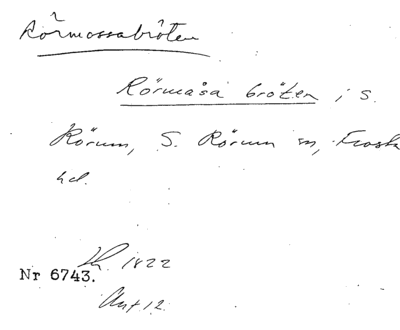 Rörmossabröten
Rörmåsa bröten i S.
Rörum, S. Rörum sn, Frosta
hd.
1822
Nr 6743.
Akt 12.